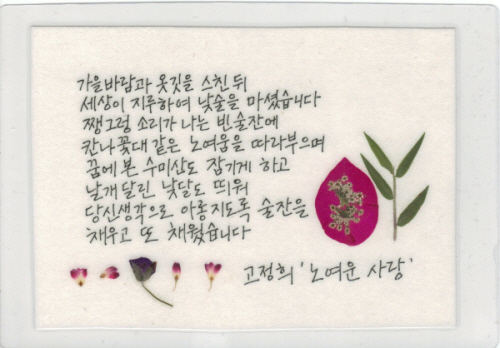 가을바람과 옷깃을 스친 뒤
세상이 지루하여 낮술을 마셨습니다
쨍그렁 소리가 나는 빈술잔에
칸나꽃대 같은 노여움을 따라부으며
꿈에 본 수미산도 잠기게 하고
날개 달린 낮달도 띄워
당신생각으로 아롱지도록 술잔을
채우고 또 채웠습니다
고정희 '노여운 사랑'